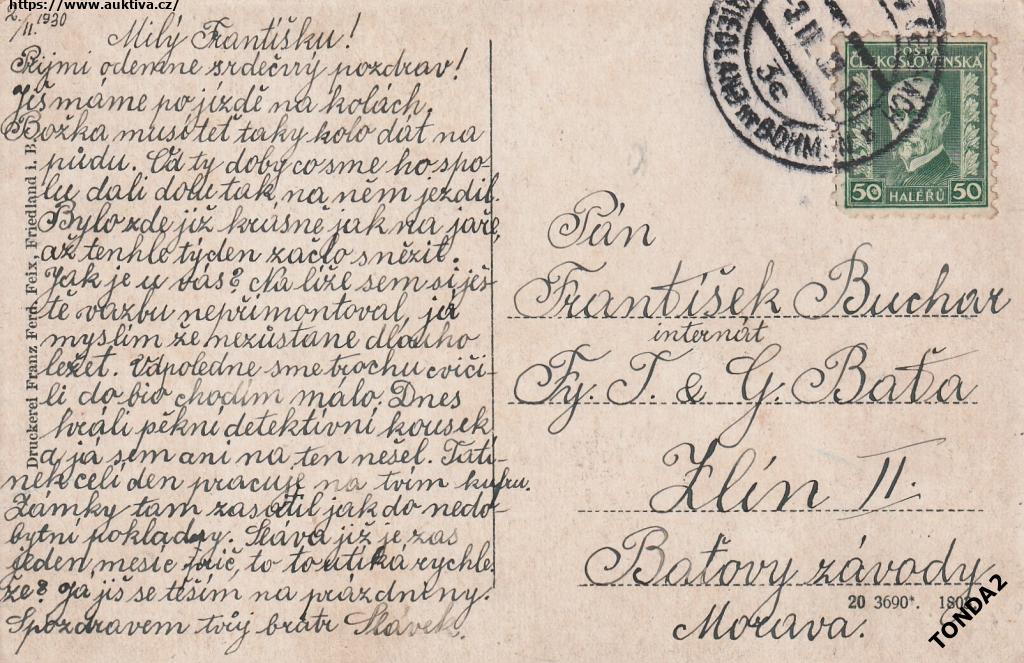 https://www.auktiva.cz/
2./II. 1930
Milý Františku!
Přijmi odemne srdečný pozdrav!
Již máme po jízdě na kolách.
Božka musí teť taky kolo dát na
půdu. Od ty doby co sme ho spo-
lu dali dolu tak na něm jezdil.
Bylo zde již krásně jak na jaře,
až tenhle týden začlo sněžit.
Jak je u vás? Na líže sem si ješ-
tě vazbu nepřimontoval, já
myslím že nezůstane dlouho
ležet. Odpoledne sme trochu cviči-
li do bio chodím málo. Dnes
hráli pěkní detektivní kousek
a já sem ani na ten nešel. Tatí-
nek celí den pracuje na tvím kufru.
Zámky tam zasadil jak do nedo-
bytní pokladny. Sláva již je zas
jeden mesíc pryč, to to utíká rychle
že? Já jiš se těším na prázdniny.
S pozdravem tvůj bratr Slávek.
Druckerei Franz Ferd. Feix, Friedland i. B.
FRIEDLAND in BÖHMEN
3c
POSTA
ČESKOSLOVENSKÁ
50 HALÉŘŮ 50
Pán
František Buchar
internát
Fy. T. & G. Baťa
Zlín II.
Baťovy závody
Morava.
20 3690*. 180
TONDA2